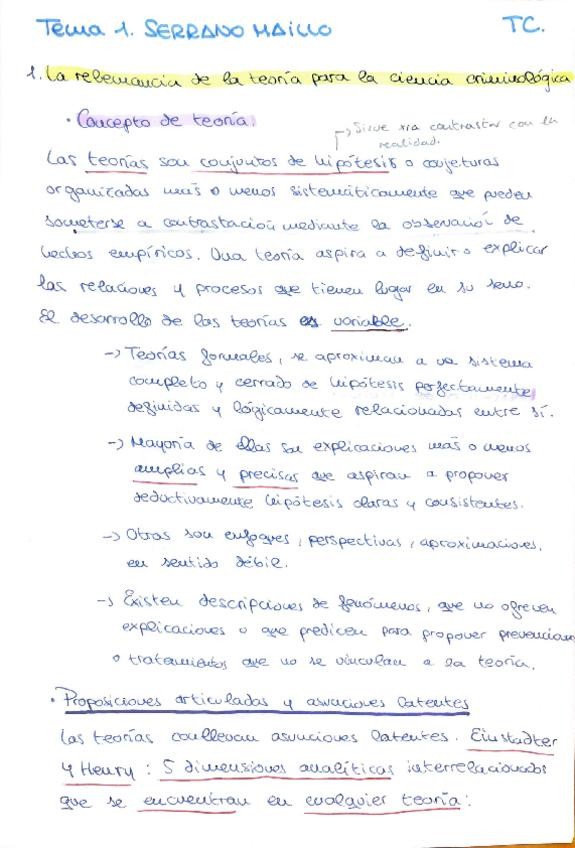 Tema 1. SERRANO MAILLO
TC.
1. La relevancia de la teoría para la ciencia criminológica
· Concepto de teoría:
→ Sirve xra contrastar con la
realidad.
Las teorías son conjuntos de hipótesis o conjeturas
organizadas más o menos sistemáticamente que pueden
someterse a contrastación mediante la observación de
hechos empíricos. Una teoría aspira a definir o explicar
las relaciones y procesos que tienen lugar en su seno.
El desarrollo de las teorías es variable.
→ Teorías formales, se aproximan a un sistema
completo y cerrado de hipótesis perfectamente
definidas y lógicamente relacionadas entre sí.
→ Mayoría de ellas son explicaciones más o menos
amplias y precisas que aspiran a proponer
deductivamente hipótesis claras y consistentes.
→ Otras son enfoques, perspectivas, aproximaciones,
en sentido débil.
→ Existen descripciones de fenómenos, que no ofrecen
explicaciones o que predicen para proponer prevencion
o tratamientos que no se vinculan a la teoría.
· Proposiciones articuladas y asunciones latentes
Las teorías conllevan asunciones latentes. Einstadter
y Henry: 5 dimensiones analíticas interrelacionadas
que se encuentran en cualquier teoría: